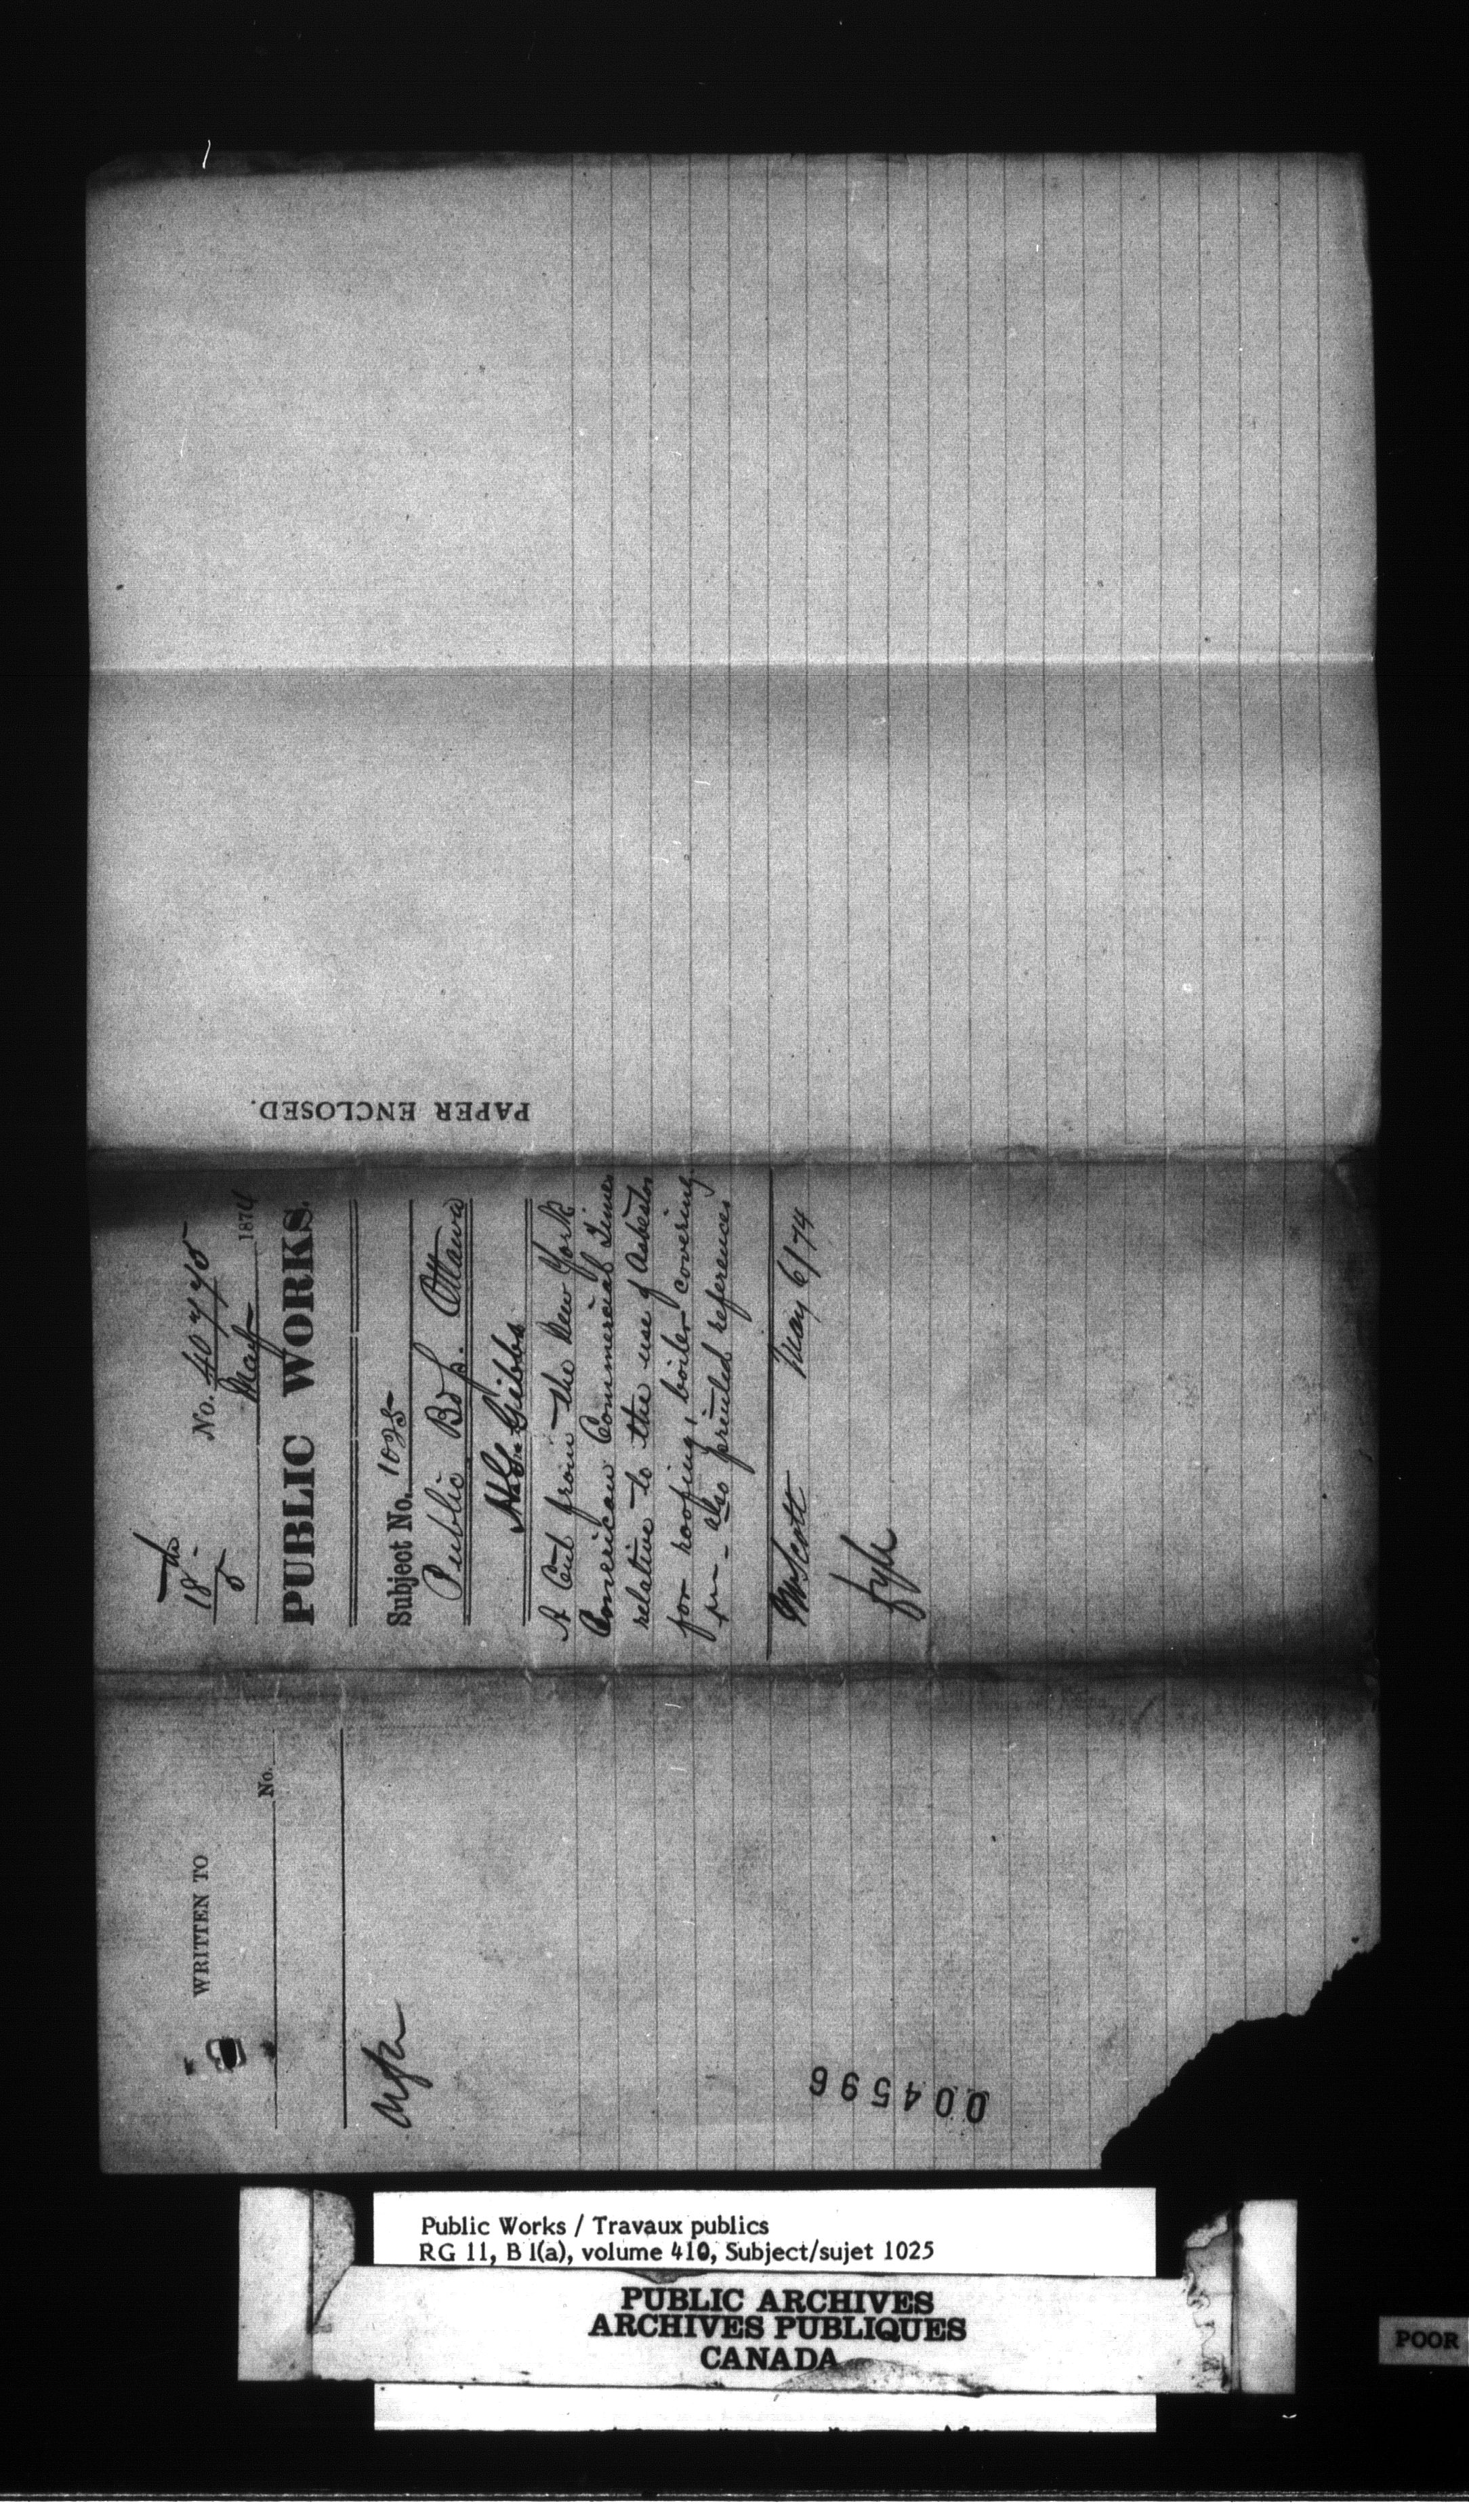 PAPER ENCLOSED.
18
5
No. 40775
May 1874
PUBLIC WORKS.
Subject No. 1025
Public Bdgs. Ottawa
Gibbs
A Cut from the New York
American Commercial Times
relative to the use of Asbestos
for roofing, boiler covering
also printed references
Scott May 6/74
WRITTEN TO
No.
004596
Public Works / Travaux publics
RG 11, B 1(a), volume 410, Subject/sujet 1025
PUBLIC ARCHIVES
ARCHIVES PUBLIQUES
CANADA
POOR